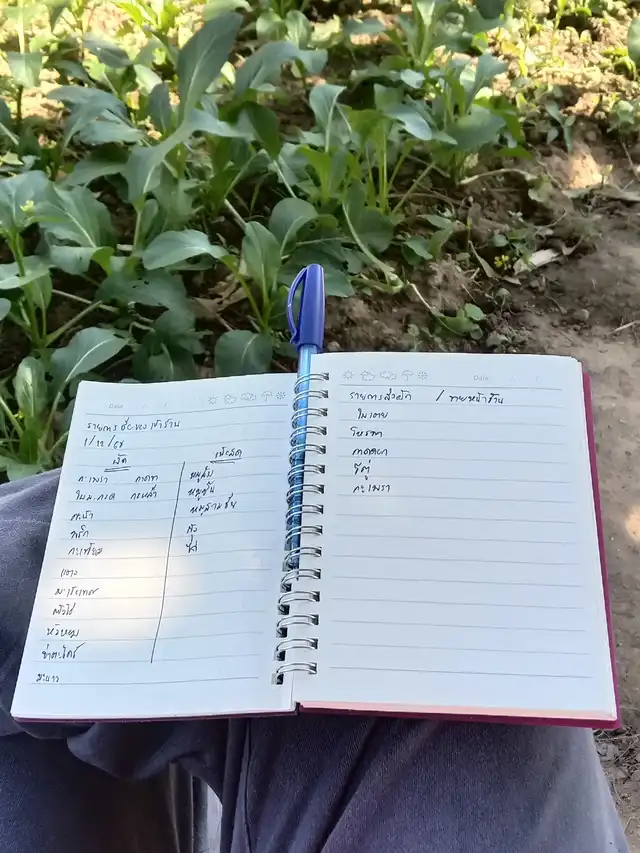 Date
รายการซื้อของเข้าร้าน
1/12/68
ผัก
กะเพรา คาดขา
ใบม.กรูด กะหล่ำ
คะน้า
พริก
กะเทียม
แตง
มะเขือเทศ
ผักชี
หัวหอม
ข่าตะไคร้
มะนาว
เนื้อสด
หมูสับ
หมูชิ้น
หมูสามชั้น
ไก่
Date
รายการส่งผัก / ขายหน้าร้าน
ใบเตย
โหรพา
กาดดอก
ชีตู่
กะเพรา